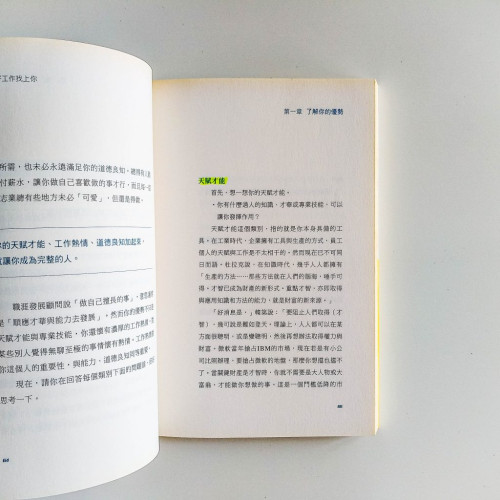 工作找上你
所需,也未必永遠滿足你的道德良知。總得有人
付薪水,讓你做自己喜歡做的事才行,而且每一
志業總有些地方未必「可愛」,但還是得做。
你的天賦才能、工作熱情、道德良知加起來,
就讓你成為完整的人。
職涯發展顧問說「做自己擅長的事」
是「順應才華與能力去發展」,然而你的優勢不
天賦才能與專業技能,你還懷有濃厚的工作熱情
某些別人覺得無聊至極的事情懷有熱情。工作
你這個人的重要性,與能力、道德良知同等重要
現在,請你在回答每個類別下面的問題前
思考一下。
84
第一章 了解你的優勢
天賦才能
首先,想一想你的天賦才能。
・你有什麼過人的知識、才華或專業技能,可以
讓你發揮作用?
天賦才能這個類別,指的就是你本身具備的工
具。在工業時代,企業擁有工具與生產的方式,員工
個人的天賦與工作是不太相干的。然而現在已不可同
日而語。杜拉克說,在知識時代,幾乎人人都擁有
「生產的方法……那些方法就在人們的腦海,唾手可
得。才智已成為財富的新形式。重點才智,亦即取得
與應用知識和方法的能力,就是財富的新來源。」
「好消息是,」魏認說:「要阻止人們取得(才
智),幾可說是難如登天。理論上,人人都可以在某
方面變聰明,或是變聰明,然後再想辦法取得權力與
財富。微軟當年搶占IBM的市場,現在若是有小公
司比照辦理,要搶占微軟的地盤,那麼你想擋也擋不
了。當關鍵財產是才智時,你就不需要是大人物或大
富翁,才能做你想做的事。這是一個門檻低降的市